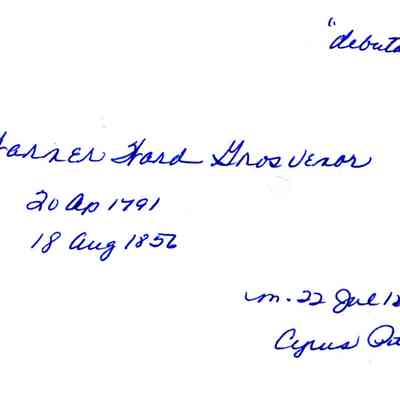 "debuta
Ward Grosvenor
20 Ap 1791
18 Aug 1856
m. 22 Jul 18
Cyrus